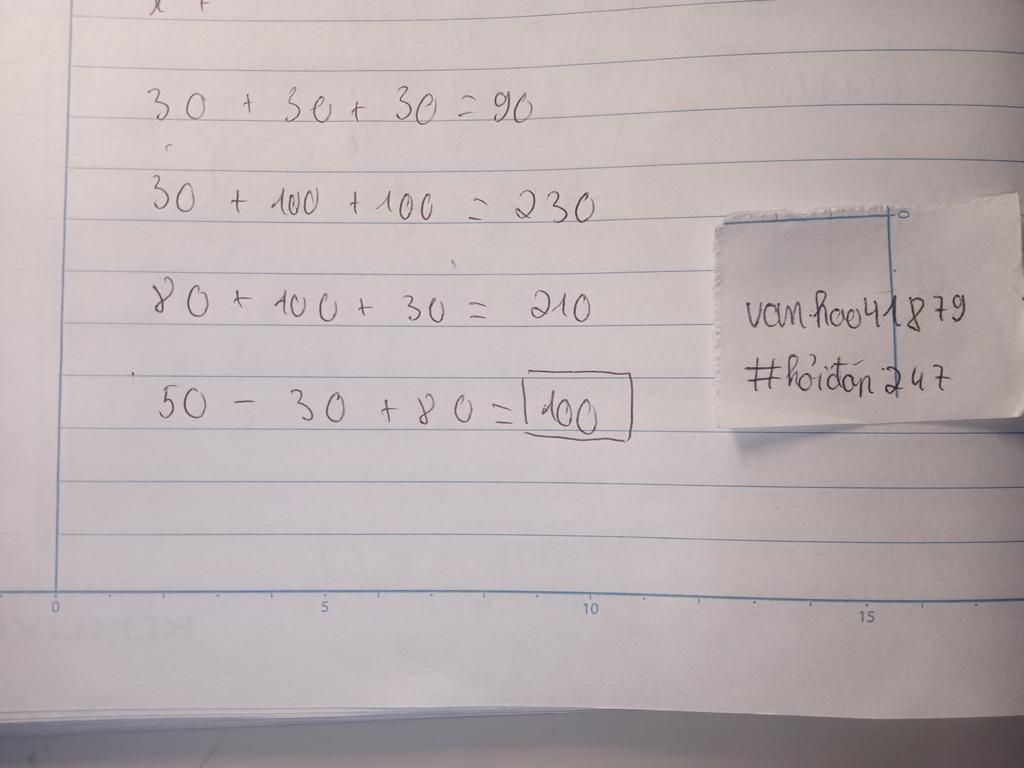 30 + 30 + 30 = 90
30 + 100 + 100 = 230
80 + 100 + 30 = 210
50 - 30 + 80 = 100
0
vanhao41879
#hỏiđán247
0 5 10 15